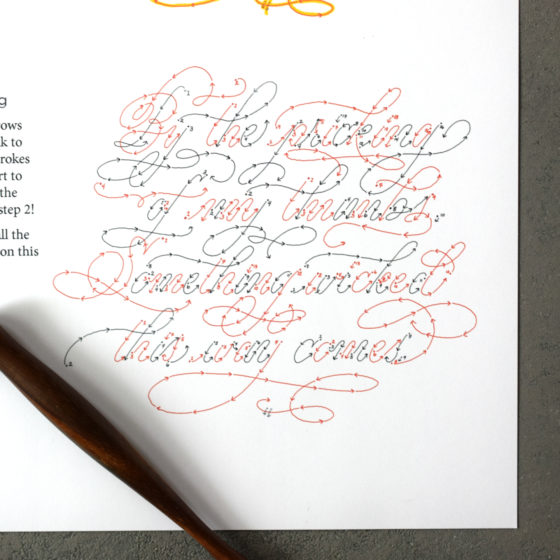 g
ows
k to
rokes
rt to
the
step 2!
ll the
on this
By the pricking
of my thumbs
Something wicked
this way comes